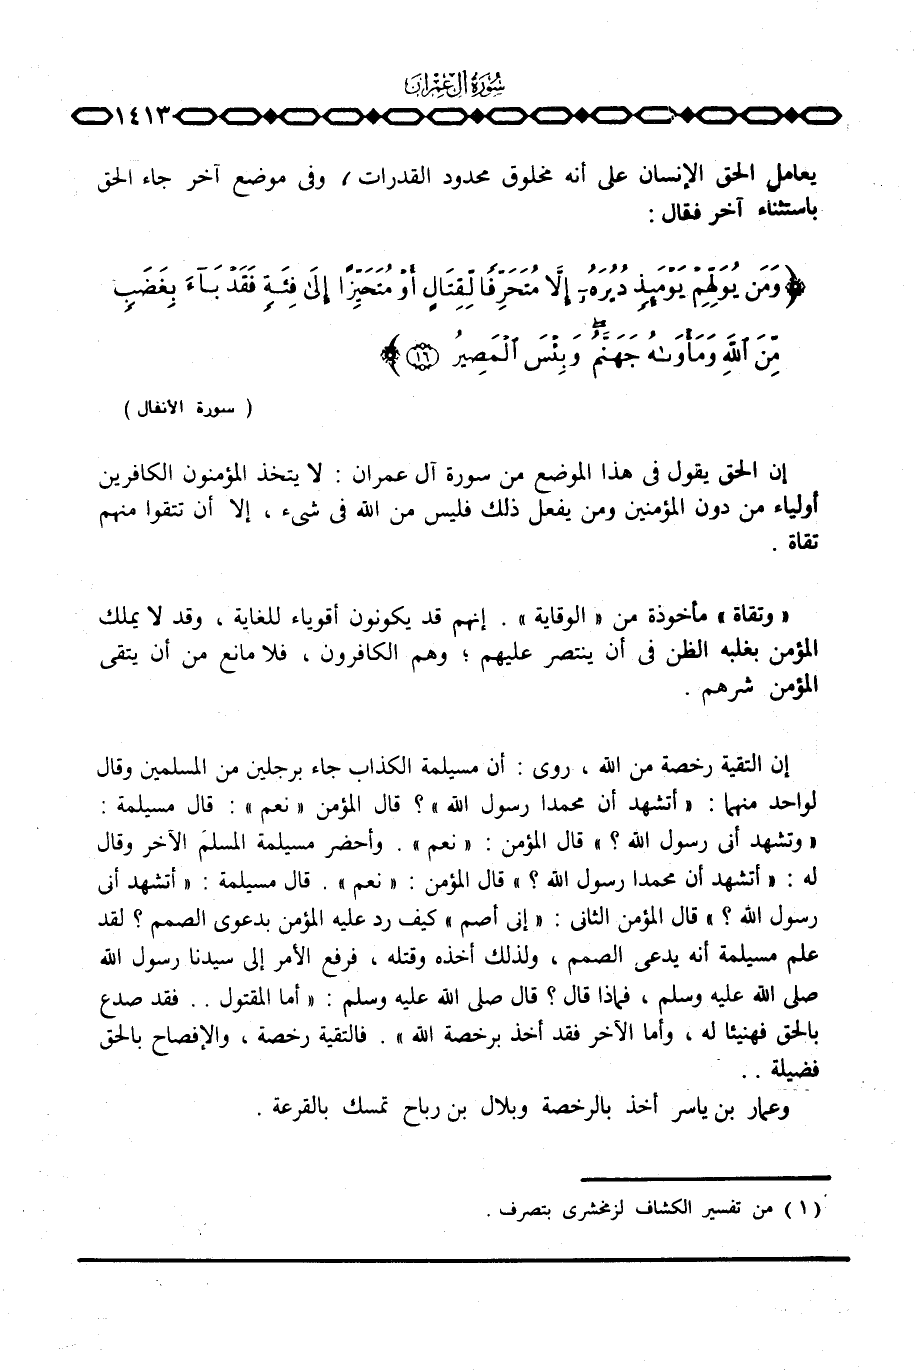 سُورَةُ آلِ عِمْرَانَ
١٤١٣
يعامل الحق الإنسان على أنه مخلوق محدود القدرات ، وفى موضع آخر جاء الحق
باستثناء آخر فقال :
﴿ وَمَن يُوَلِّهِمْ يَوْمَئِذٍ دُبُرَهُۥٓ إِلَّا مُتَحَرِّفًا لِّقِتَالٍ أَوْ مُتَحَيِّزًا إِلَىٰ فِئَةٍ فَقَدْ بَآءَ بِغَضَبٍ
مِّنَ ٱللَّهِ وَمَأْوَىٰهُ جَهَنَّمُ ۖ وَبِئْسَ ٱلْمَصِيرُ ﴿١٦﴾ ﴾
( سورة الأنفال )
إن الحق يقول فى هذا الموضع من سورة آل عمران : لا يتخذ المؤمنون الكافرين
أولياء من دون المؤمنين ومن يفعل ذلك فليس من الله فى شىء ، إلا أن تتقوا منهم
تقاة .
« وتقاة » مأخوذة من « الوقاية » . إنهم قد يكونون أقوياء للغاية ، وقد لا يملك
المؤمن بغلبه الظن فى أن ينتصر عليهم ؛ وهم الكافرون ، فلا مانع من أن يتقى
المؤمن شرهم .
إن التقية رخصة من الله ، روى : أن مسيلمة الكذاب جاء برجلين من المسلمين وقال
لواحد منهما : « أتشهد أن محمدا رسول الله » ؟ قال المؤمن « نعم » : قال مسيلمة :
« وتشهد أنى رسول الله ؟ » قال المؤمن : « نعم » . وأحضر مسيلمة المسلمَ الآخر وقال
له : « أتشهد أن محمدا رسول الله ؟ » قال المؤمن : « نعم » . قال مسيلمة : « أتشهد أنى
رسول الله ؟ » قال المؤمن الثانى : « إنى أصم » كيف رد عليه المؤمن بدعوى الصمم ؟ لقد
علم مسيلمة أنه يدعى الصمم ، ولذلك أخذه وقتله ، فرفع الأمر إلى سيدنا رسول الله
صلى الله عليه وسلم ، فماذا قال ؟ قال صلى الله عليه وسلم : « أما المقتول . . فقد صدع
بالحق فهنيئا له ، وأما الآخر فقد أخذ برخصة الله » . فالتقية رخصة ، والإفصاح بالحق
فضيلة . .
وعمار بن ياسر أخذ بالرخصة وبلال بن رباح تمسك بالقرعة .
( ١ ) من تفسير الكشاف لزمخشرى بتصرف .